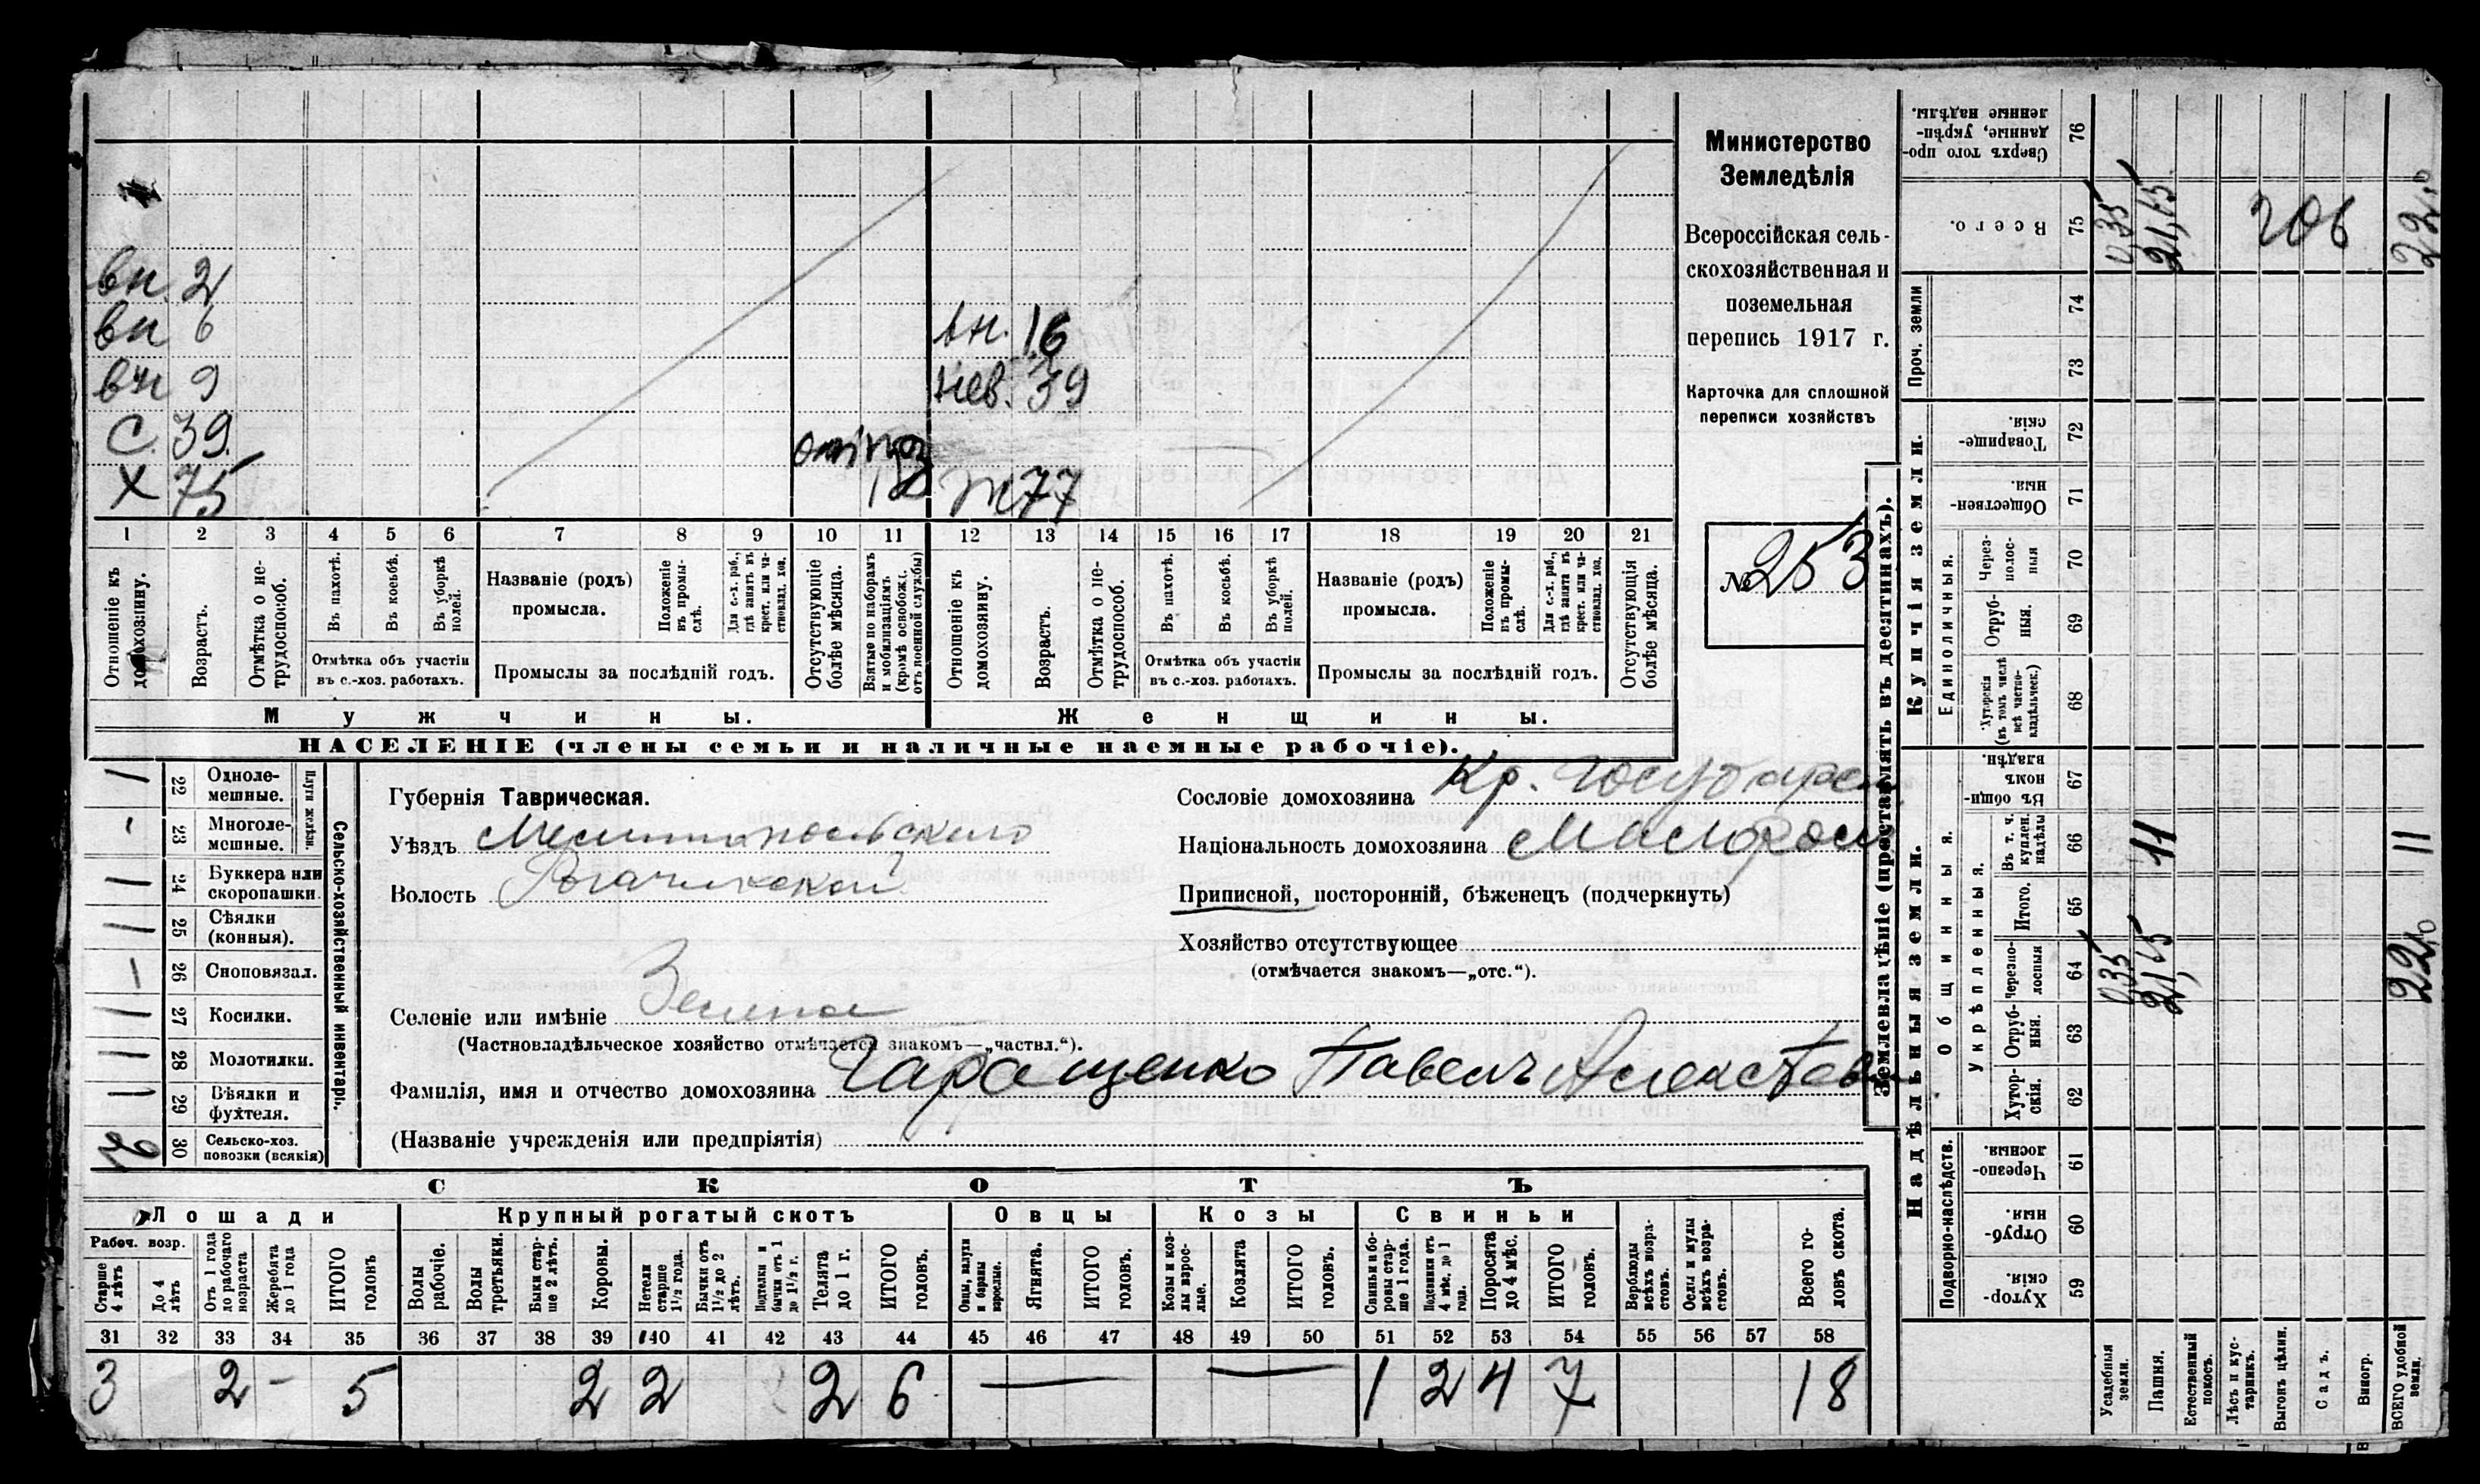 Министерство
Земледѣлія
Всероссійская сель-
скохозяйственная и
поземельная
перепись 1917 г.
Карточка для сплошной
переписи хозяйствъ
№ 253
вн. 2
вн 6
вн 9
С. 39.
Х 75
12
вн. 16
нев. 39
ж 77
1 2 3 4 5 6 7 8 9 10 11 12 13 14 15 16 17 18 19 20 21
Отношеніе къ домохозяину.
Возрастъ.
Отмѣтка о не-трудоспособ.
Въ пахотѣ.
Въ косьбѣ.
Въ уборкѣ полей.
Отмѣтка объ участіи
въ с.-хоз. работахъ.
Названіе (родъ)
промысла.
Положеніе въ промы-слѣ.
Для с.-х. раб., гдѣ занятъ въ крест. или ча-стновлад. хоз.
Промыслы за послѣдній годъ.
Отсутствующіе болѣе мѣсяца.
Взятые по наборамъ и мобилизаціямъ (кромѣ освобожд. отъ военной службы)
Отношеніе къ домохозяину.
Возрастъ.
Отмѣтка о не-трудоспособ.
Въ пахотѣ.
Въ косьбѣ.
Въ уборкѣ полей.
Отмѣтка объ участіи
въ с.-хоз. работахъ.
Названіе (родъ)
промысла.
Положеніе въ промы-слѣ.
Для с.-х. раб., гдѣ занята въ крест. или ча-стновлад. хоз.
Промыслы за послѣдній годъ.
Отсутствующія болѣе мѣсяца.
Мужчины.
Женщины.
НАСЕЛЕНІЕ (члены семьи и наличные наемные рабочіе).
Сельско-хозяйственный инвентарь.
Плуги желѣзн.
22 Одноле-мешные.
23 Многоле-мешные.
24 Буккера или скоропашки.
25 Сѣялки (конныя).
26 Сноповязал.
27 Косилки.
28 Молотилки.
29 Вѣялки и фухтеля.
30 Сельско-хоз. повозки (всякія) 2
Губернія Таврическая.
Уѣздъ Мелитопольскаго
Волость Рогачикской
Селеніе или имѣніе
(Частновладѣльческое хозяйство отмѣчается знакомъ—„частвл.“).
Фамилія, имя и отчество домохозяина Гаращенко Павелъ Алексѣев
(Названіе учрежденія или предпріятія)
Сословіе домохозяина Кр. Государс
Національность домохозяина Малорос
Приписной, посторонній, бѣженецъ (подчеркнуть)
Хозяйство отсутствующее
(отмѣчается знакомъ—„отс.“).
СКОТЪ
Лошади
Крупный рогатый скотъ
Овцы
Козы
Свиньи
Рабоч. возр.
Старше 4 лѣтъ
До 4 лѣтъ
Отъ 1 года до рабочаго возраста
Жеребята до 1 года
ИТОГО головъ
Волы рабочіе.
Волы третьяки.
Быки стар-ше 2 лѣтъ.
Коровы.
Нетели старше 1½ года.
Бычки отъ 1½ до 2 лѣтъ.
Подтелки и бычки отъ 1 до 1½ г.
Телята до 1 г.
ИТОГО головъ.
Овцы, валухи и бараны взрослые.
Ягнята.
ИТОГО головъ.
Козы и коз-лы взрос-лые.
Козлята
ИТОГО головъ.
Свиньи и бо-ровы стар-ше 1 года.
Подсвинки отъ 4 мѣс. до 1 года.
Поросята до 4 мѣс.
ИТОГО головъ.
Верблюды всѣхъ возра-стовъ.
Ослы и мулы всѣхъ возра-стовъ.
Всего го-ловъ скота.
31 32 33 34 35 36 37 38 39 40 41 42 43 44 45 46 47 48 49 50 51 52 53 54 55 56 57 58
3 2 – 5 2 2 2 6 — — 1 2 4 7 18
Землевладѣніе (проставлять въ десятинахъ).
Надѣльныя земли.
Купчія земли.
Проч. земли
Подворно-наслѣдств.
Общинныя.
Укрѣпленныя.
Единоличныя.
Сверхъ того про-данные, укрѣп-ленные надѣлы. 76
Всего. 75 0,35 21,65 206 22,0
74
73
Товарище-скія. 72
Обществен-ныя. 71
Через-полос-ныя 70
Отруб-ныя. 69
Хуторскія (въ томъ числѣ всѣ частно-владѣльческ.) 68
Въ общин-номъ владѣн. 67
Въ т. ч. куплен. надѣлы 66 11 11
Итого. 65
Черезпо-лосныя 64 0,35 21,65 22,0
Отруб-ныя. 63
Хутор-скія. 62
Черезпо-лосныя. 61
Отруб-ныя. 60
Хутор-скія. 59
Усадебныя земли.
Пашня.
Естественный покосъ.
Лѣсъ и кус-тарникъ.
Выгонъ цѣлин.
Садъ.
Виногр.
ВСЕГО удобной земли.